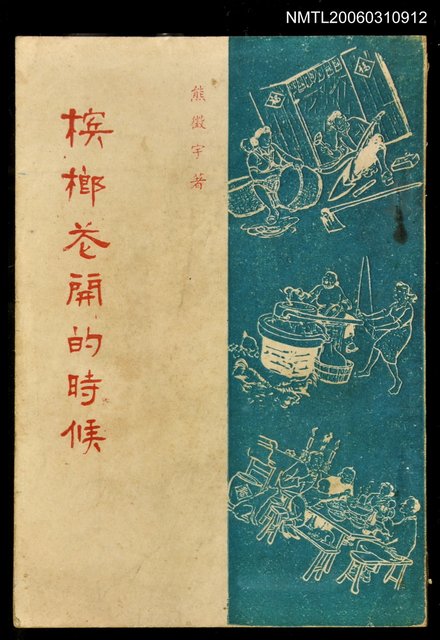 NMTL20060310912
熊徵宇著
檳榔花開的時候